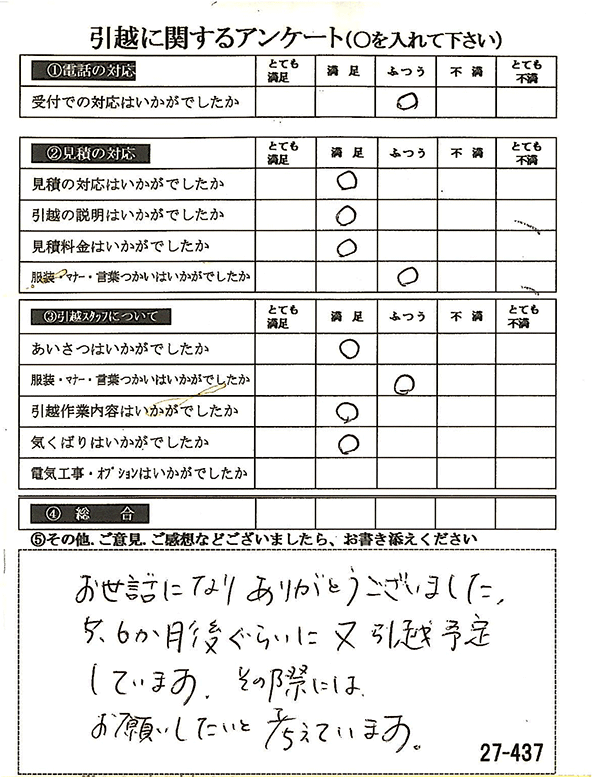 引越に関するアンケート(○を入れて下さい)
①電話の対応 とても満足 満足 ふつう 不満 とても不満
受付での対応はいかがでしたか ○
②見積の対応 とても満足 満足 ふつう 不満 とても不満
見積の対応はいかがでしたか ○
引越の説明はいかがでしたか ○
見積料金はいかがでしたか ○
服装・マナー・言葉つかいはいかがでしたか ○
③引越スタッフについて とても満足 満足 ふつう 不満 とても不満
あいさつはいかがでしたか ○
服装・マナー・言葉つかいはいかがでしたか ○
引越作業内容はいかがでしたか ○
気くばりはいかがでしたか ○
電気工事・オプションはいかがでしたか
④ 総 合
⑤その他.ご意見.ご感想などございましたら、お書き添えください
お世話になりありがとうございました、
5、6か月後ぐらいに又引越予定
しています、その際には
お願いしたいと考えています。
27-437